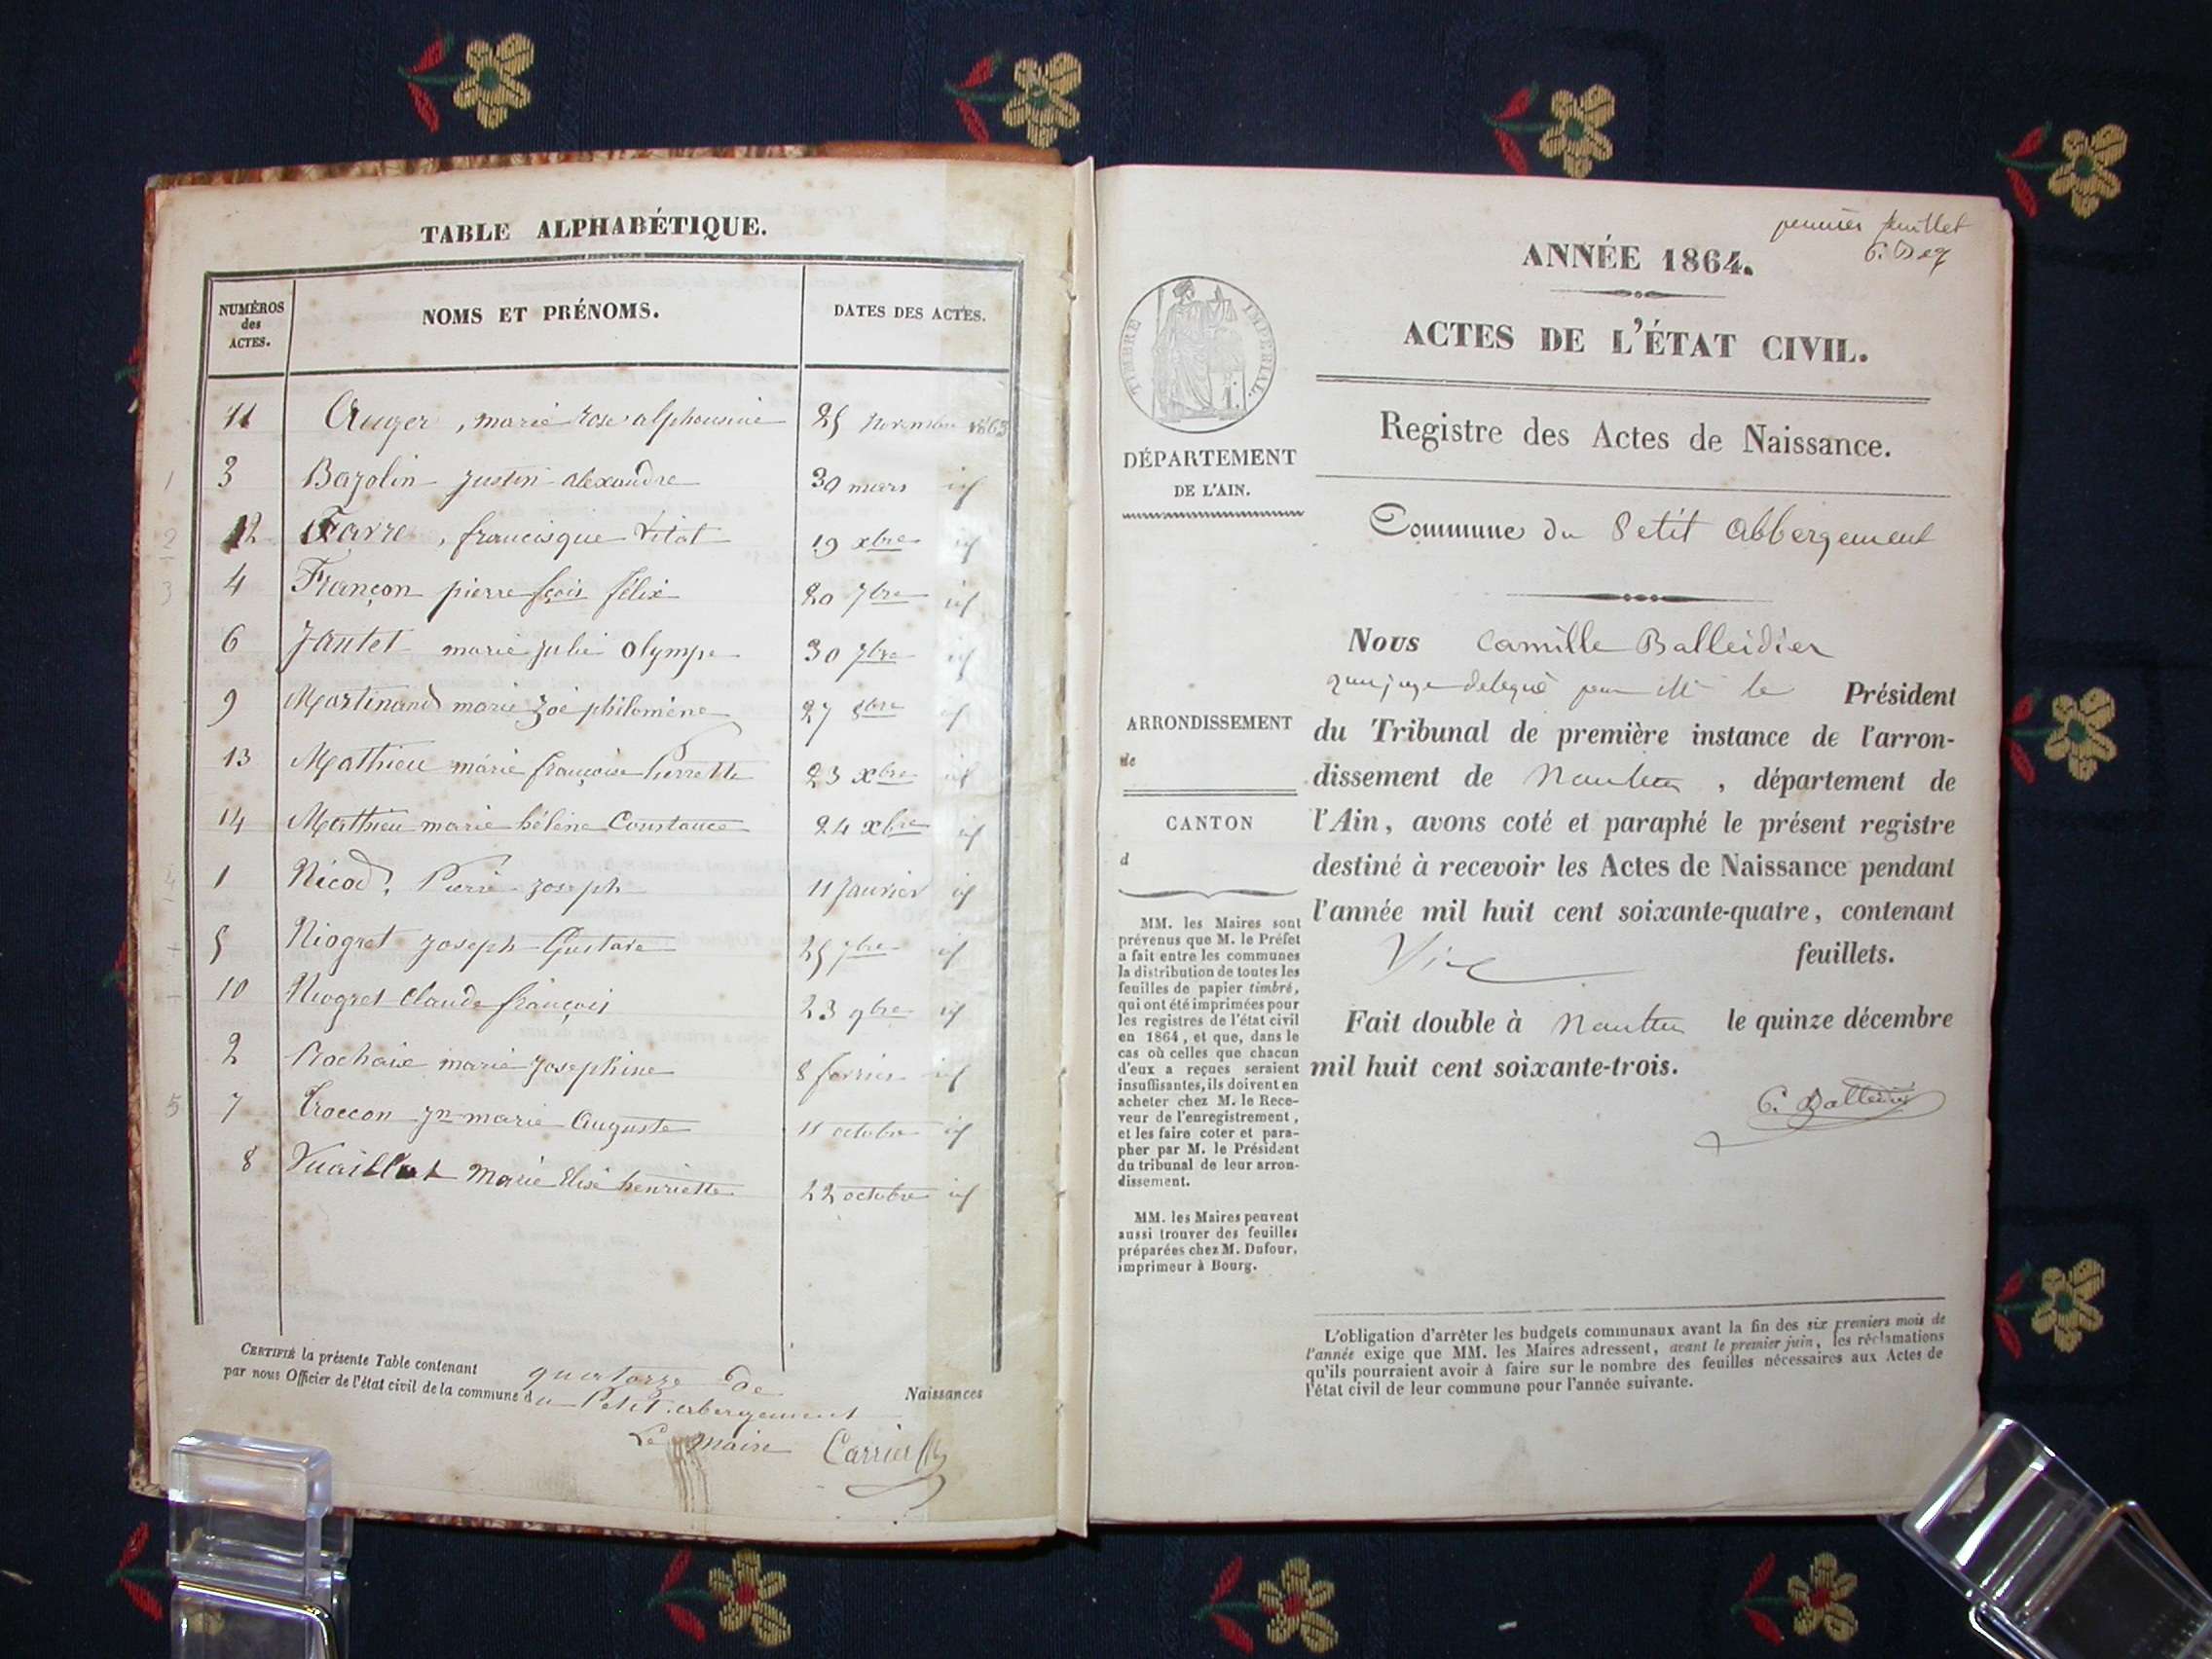 TABLE ALPHABÉTIQUE.
NUMÉROS
des
ACTES.
NOMS ET PRÉNOMS.
DATES DES ACTES.
11 Auger, marie rose alphonsine 25 novembre 1863
3 Bazolin justin alexandre 30 mars id
12 Favre, francisque Vital 19 xbre id
4 Françon pierre fçois félix 20 7bre id
6 Jantet marie julie olympe 30 7bre id
9 Martinand marie zoé philomène 27 8bre id
13 Mathieu marie françoise Pierrette 23 xbre id
14 Mathieu marie hélène Constance 24 xbre id
1 Nicod, Pierre joseph 11 Janvier id
5 Niogret joseph Gustave 25 7bre id
10 Niogret Claude françois 23 9bre id
2 Rochaix marie josephine 8 fevrier id
7 Troccon jn marie Auguste 11 octobre id
8 Vuaillat Marie Elise henriette 22 octobre id
1
2
3
4
5
CERTIFIÉ la présente Table contenant quatorze de Naissances
par nous Officier de l'état civil de la commune du Petit abergement
Le maire Carrier
premier feuillet
ANNÉE 1864.
ACTES DE L'ÉTAT CIVIL.
Registre des Actes de Naissance.
Commune du Petit Abbergement
TIMBRE IMPÉRIAL.
DÉPARTEMENT
DE L'AIN.
ARRONDISSEMENT
de
CANTON
d
MM. les Maires sont
prévenus que M. le Préfet
a fait entre les communes
la distribution de toutes les
feuilles de papier timbré,
qui ont été imprimées pour
les registres de l'état civil
en 1864, et que, dans le
cas où celles que chacun
d'eux a reçues seraient
insuffisantes, ils doivent en
acheter chez M. le Rece-
veur de l'enregistrement,
et les faire coter et para-
pher par M. le Président
du tribunal de leur arron-
dissement.
MM. les Maires peuvent
aussi trouver des feuilles
préparées chez M. Dufour,
imprimeur à Bourg.
Nous Camille Balleidier
juge delegué par Mr le Président
du Tribunal de première instance de l'arron-
dissement de Nantua, département de
l'Ain, avons coté et paraphé le présent registre
destiné à recevoir les Actes de Naissance pendant
l'année mil huit cent soixante-quatre, contenant
feuillets.
Fait double à Nantua le quinze décembre
mil huit cent soixante-trois.
C. Balleidier
L'obligation d'arrêter les budgets communaux avant la fin des six premiers mois de
l'année exige que MM. les Maires adressent, avant le premier juin, les réclamations
qu'ils pourraient avoir à faire sur le nombre des feuilles nécessaires aux Actes de
l'état civil de leur commune pour l'année suivante.